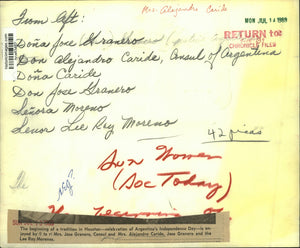 Mrs. Alejandro Caride
MON JUL 14 1969
From left:
RETURN TO:
CHRONICLE FILES
Doña Jose Granero
Don Alejandro Caride, Consul of Argentina
Doña Caride
Don Jose Granero
Señora Moreno
Senor Lee Roy Moreno
42 picas
Sun Women
(Soc Today)
The beginning of a tradition in Houston—celebration of Argentina's Independence Day—is enjoyed by Mrs. Jose Granero, Consul and Mrs. Alejandro Caride, Jose Granero and the Lee Roy Morenos.